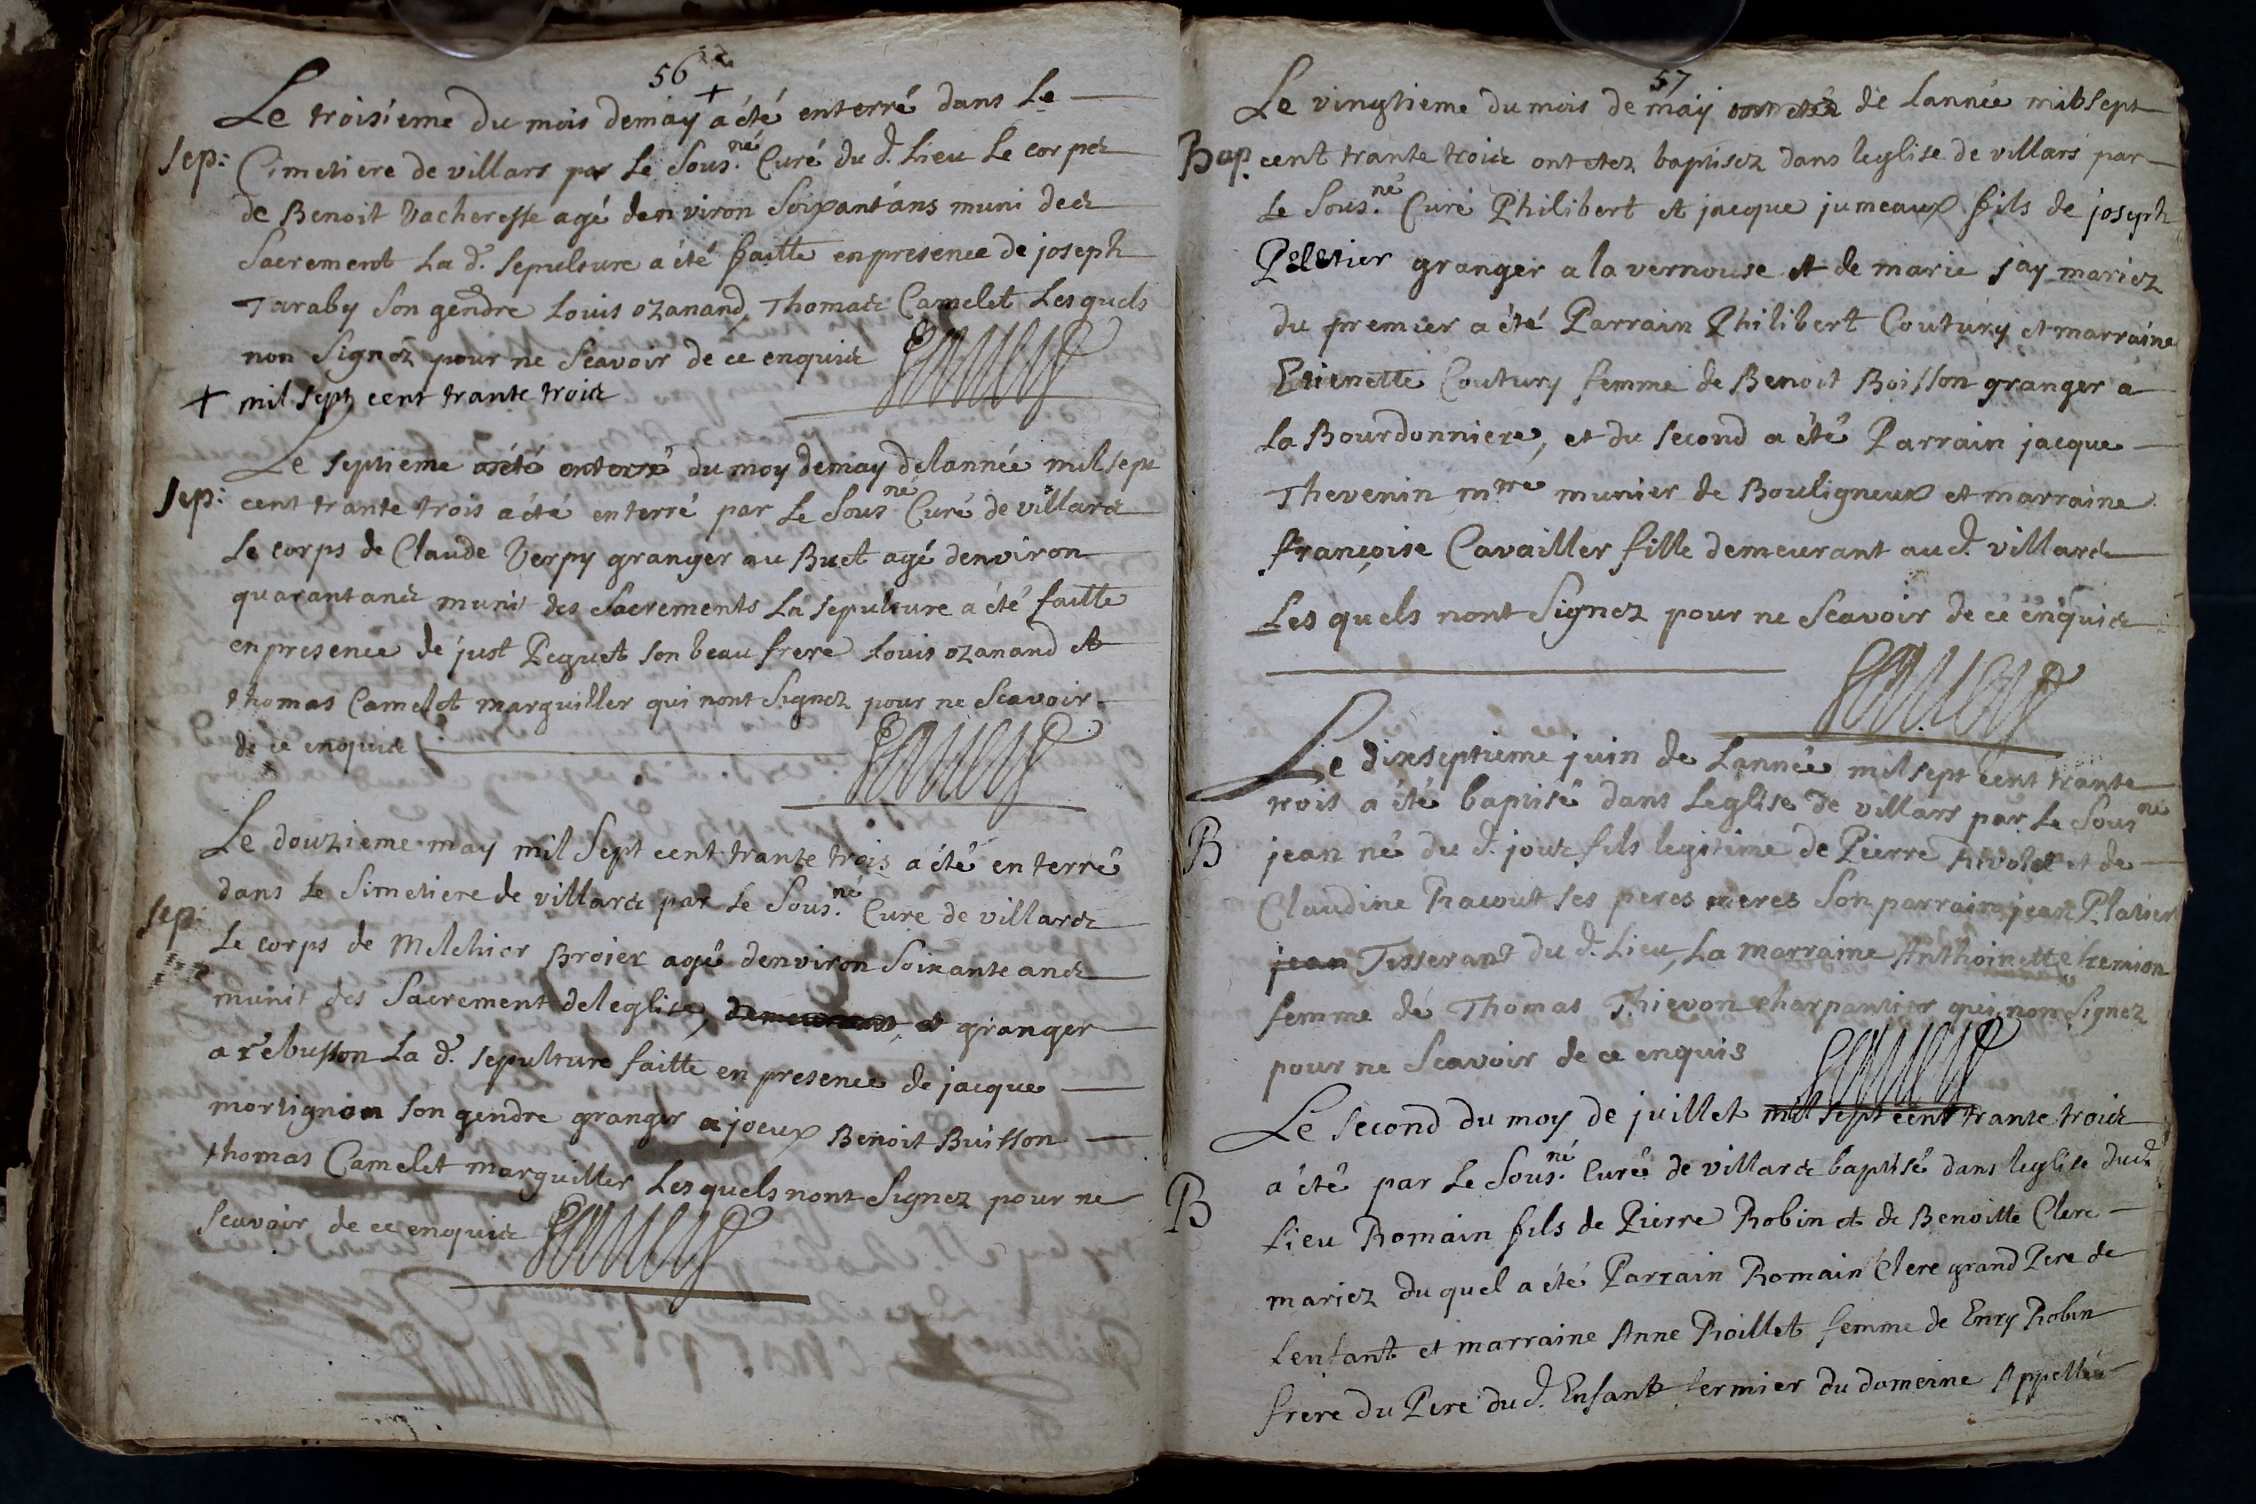 56
+
Le troisieme du mois demay a été enterré dans le
sep: Cimetiere de villars par Le Sous.né Curé du d. Lieu Le corps
de Benoit Vacheresse agé denviron Soixant'ans muni des
Sacrement La d. sepulture a été faitte enpresence de joseph
Taraby Son gendre Louis ozanand Thomas Camelet Lesquels
non Signez pour ne Scavoir de ce enquis
+ mil sept cent trante trois
Le septieme a été enterré du moy demay delannée mil sept
sep: cent trante trois a été enterré par Le Sous.né Curé de villars
Le corps de Claude Verpy granger au Buet agé denviron
quarantans muni des Sacrements La sepulture a été faitte
enpresence de just Peguet son beau frere Louis ozanand et
thomas Camelet marguiller qui nont Signez pour ne Scavoir
de ce enquis
Le douzieme may mil Sept cent trante trois a été enterré
dans Le Simetiere de villars par Le Sous.né Curé de villars
sep: Le corps de Melchior Broier agé denviron Soixante ans
munit des Sacrement deleglise, demeurant et granger
a rebusson La d. sepulture faitte en presence de jacque
mortignon son gendre granger a joeux Benoit Buisson
thomas Camelet marguiller Lesquels nont Signez pour ne
scavoir de ce enquis
57
Le vingtieme du mois de may de lannée mil sept
Bap. cent trante trois ont etez baptisez dans leglise de villars par
Le Sous.né Curé Philibert et jacque jumeaux fils de joseph
Peletier granger a la vernouse et de marie jay mariez
du premier a été Parrain Philibert Coutury et marraine
Etienette Coutury femme de Benoit Boisson granger a
La Bourdonniere, et du second a été Parrain jacque
Thevenin mtre munier de Bouligneux et marraine
françoise Cavailler fille demeurant au d. villars
Les quels nont Signez pour ne Scavoir de ce enquis
Le dixseptieme juin de Lannée mil sept cent trante
trois a été baptisé dans Leglise de villars par Le Sousné
B jean né du d. jour fils legitime de Pierre Rivolet et de
Claudine Pracout ses peres meres Son parrain jean Platier
jean Tisserant du d. Lieu, La marraine Anthoinette
femme de Thomas Thievon charpantier qui non Signez
pour ne Scavoir de ce enquis
Le second du moy de juillet mil sept cent trante trois
a été par Le Sous.né Curé de villars baptisé dans leglise dud.
B Lieu Romain fils de Pierre Robin et de Benoitte Clere
mariez du quel a été Parrain Romain Clere grand Pere de
Lenfant et marraine Anne Proillet femme de Enry Robin
frere du Pere du d. Enfant fermier du domeine Appellée